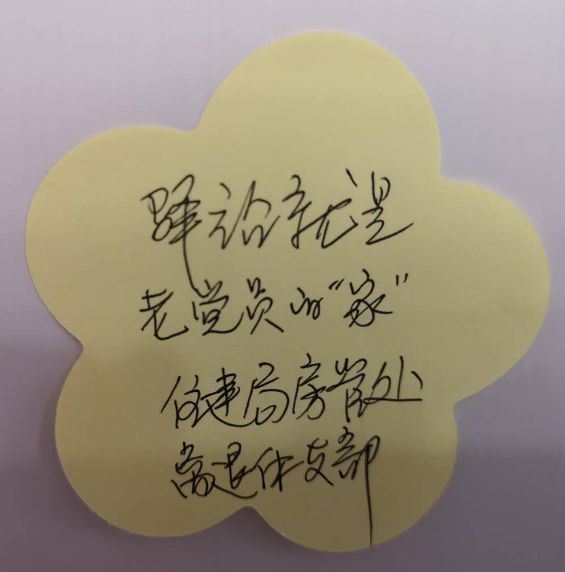 驿站就是
老党员的“家”
住建局房管处
离退休支部